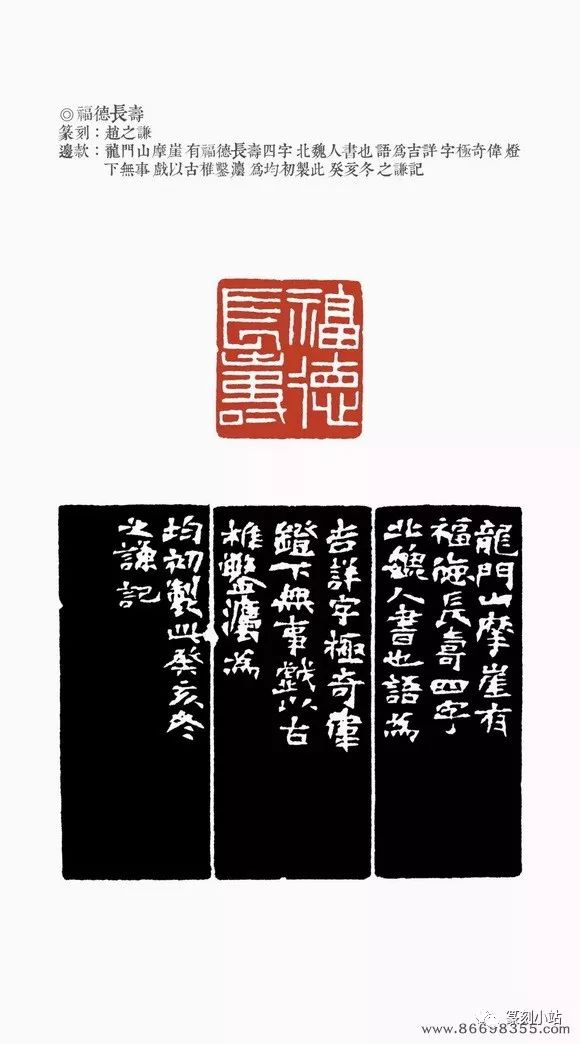 ◎福德長壽
篆刻：趙之謙
邊款：龍門山摩崖有福德長壽四字北魏人書也語為吉詳字極奇偉燈
下無事戲以古椎鑿灋為均初製此癸亥冬之謙記
福德
長壽
龍門山摩崖有
福德長壽四字
北魏人書也語為
吉詳字極奇偉
鐙下無事戲以古
椎鑿灋為
均初製此癸亥冬
之謙記
篆刻小站
www.86698355.com